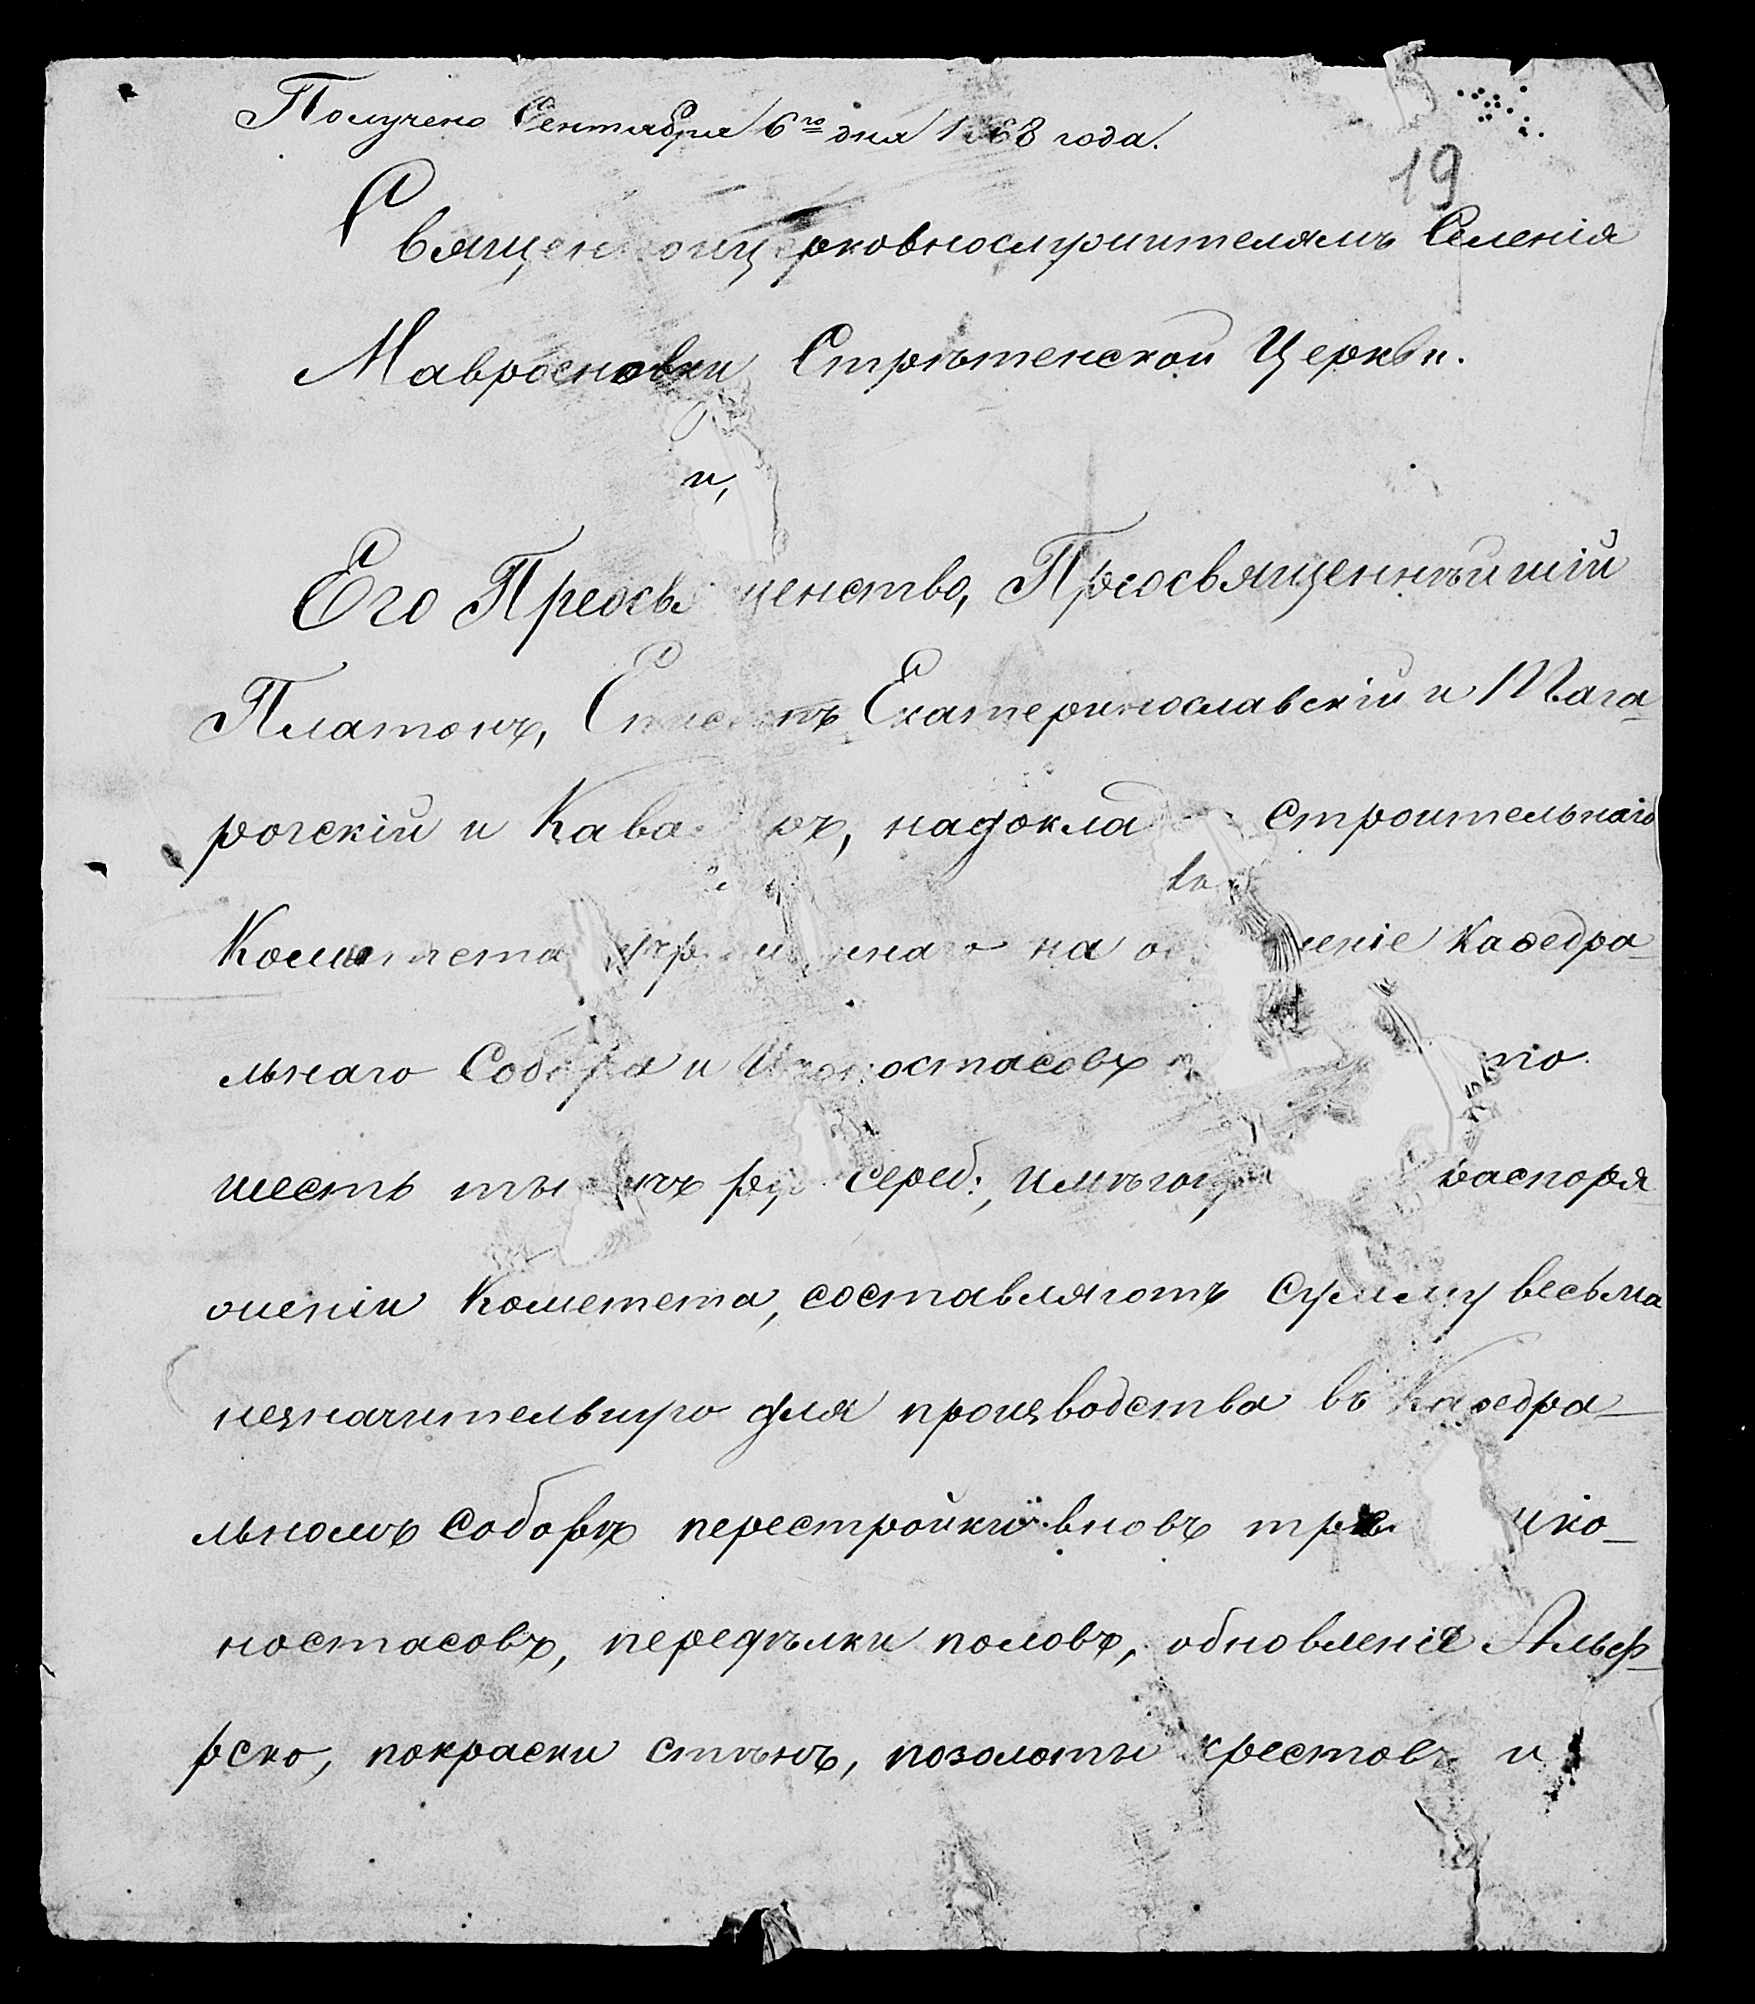 Получено Сентября 6го дня 1868 года.
19
Священноцерковнослужителямъ Селенія
Стрѣтенской Церкви.
и,
Его Преосвященство, Преосвященнѣйшій
Платонъ, Епископъ Екатеринославскій и Тага-
рогскій и Кава ръ, надокла строительнаго
Комитета на о леніе Каѳедра-
льнаго Собора и Иконостасовъ то
шесть ты чъ ру сереб:, имѣющ распоря
женіи Кометета, составляютъ сумму весьма
незначительную для производства въ Каѳедра-
льномъ соборѣ перестройки вновъ трех ико-
ностасовъ, передѣлки половъ, обновленіе Альф-
рско, покраски стѣнъ, позолоты крестовъ и